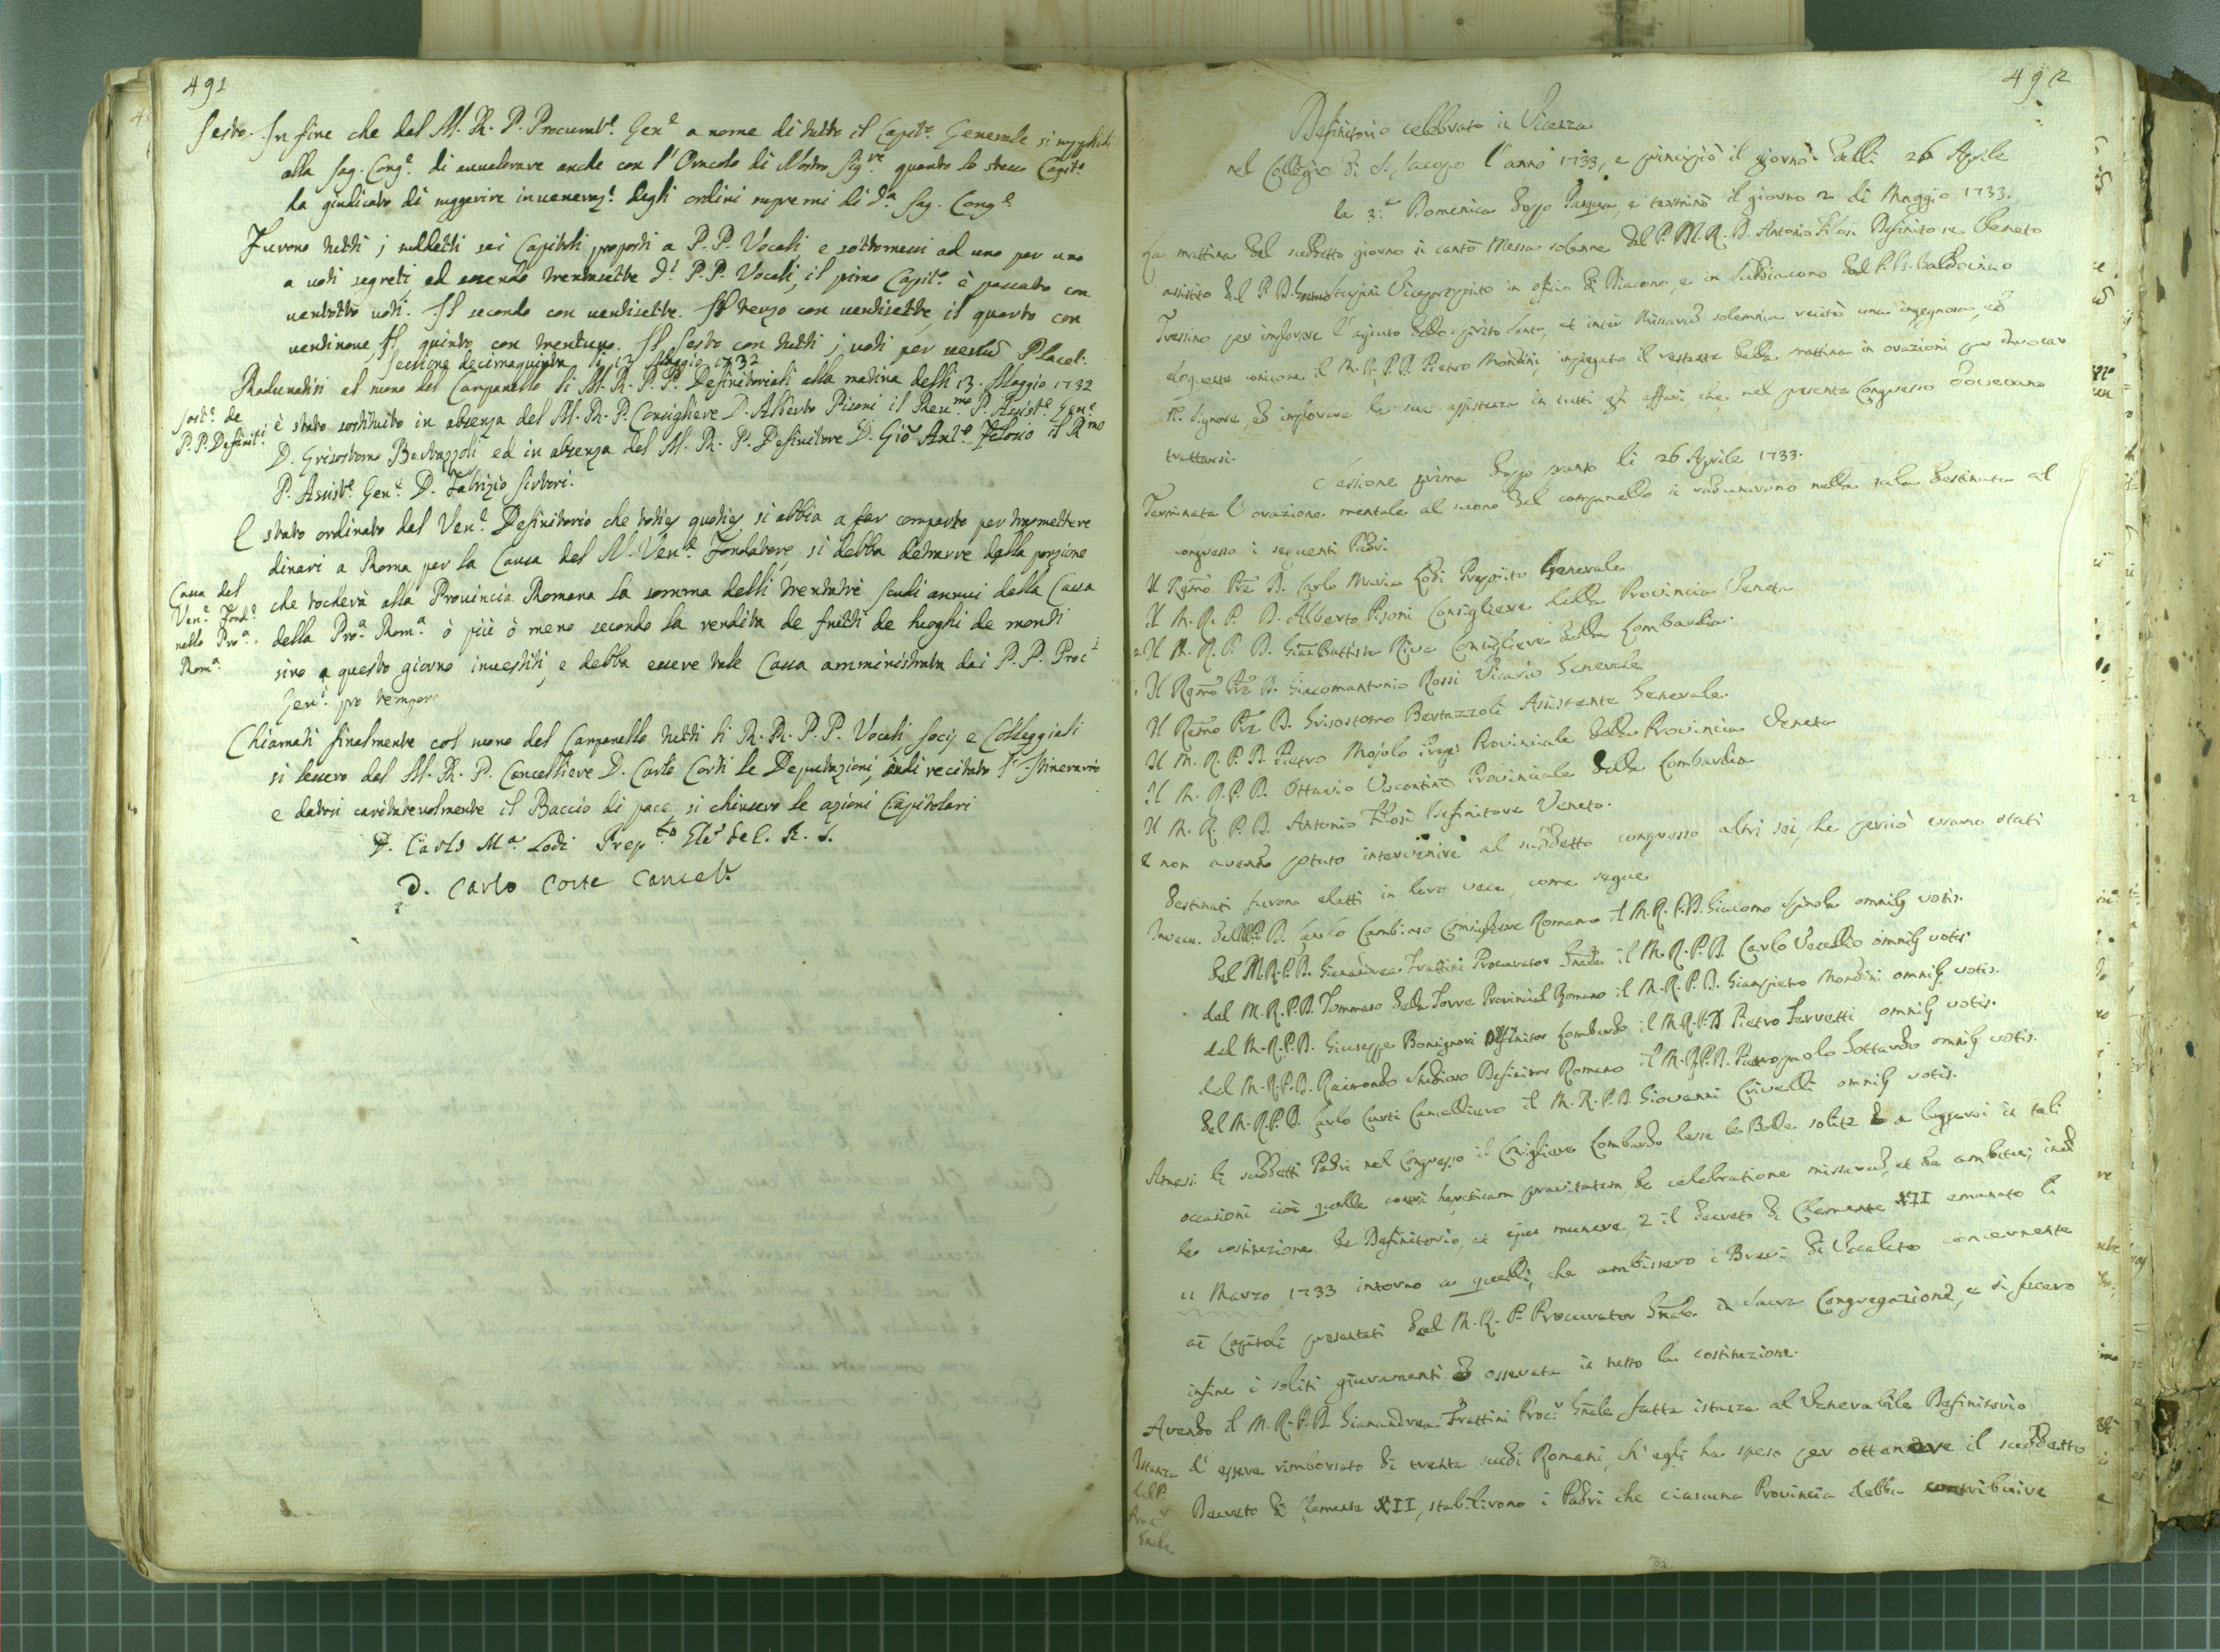 491
Sesto. In fine che dal M. R. P. Procurat.e Gen.e a nome di tutto il Capit.o Generale si supplichi
alla Sag. Cong.e di avvalorare anche con l'Oracolo di Nostro Sig.re quanto lo stesso Capit.o
ha giudicato di suggerire degli ordini supremi di d.a Sag. Cong.e
Furono tutti i suddetti sei Capitoli proposti a P.P. Vocali, e sottomessi ad uno per uno
a voti segreti, ed essendo trentasette d.i P.P. Vocali, il primo Capit.o è passato con
ventotto voti. Il secondo con ventisette. Il terzo con ventisette, il quarto con
ventinove, Il quinto con trentuno. Il sesto con tutti i voti per Placet.
Sessione decimaquinta li 13 Maggio 1732
Radunatisi al suono del Campanello li M. R. P. P. Definitoriali alla matina delli 13. Maggio 1732
Sost.e de
P. P. Definit.i
è stato sostituito in absenza del M. R. P. Consigliere D. Alberto Pisoni il Reu.mo P. Assist.e Gen.e
D. Grisostomo Bertazzoli ed in absenza del M. R. P. Definitore D. Giō Ant.o Filosio il R.mo
P. Assist.e Gen.e D. Fabrizio
E stato ordinato dal Ven.e Definitorio che toties quoties si abbia a far comparto per trasmettere
dinari a Roma per la Causa del N. Ven.e Fondatore, si debba detrarre dalla porzione
Cassa del
Ven.e Fond.e
nella Pro.a
Rom.a
che toccherà alla Provincia Romana la somma delli trentatrè scudi annui della Cassa
della Pro.a Rom.a ò più ò meno secondo la rendita de frutti de luoghi de monti
sino a questo giorno investiti, e debba essere tale Cassa amministrata dai P. P. Proc.i
Gen.i pro tempore
Chiamati finalmente col suono del Campanello tutti li R. R. P. P. Vocali, Socij e Colleggiali
si lessero dal M. R. P. Cancelliere D. Carlo Corti le Deputazioni, indi recitato l'Itinerario
e datosi caritatevolmente il Baccio di pace, si chiusero le azioni Capitolari
D. Carlo M.a Lodi Prep.to Gle de C. R. S.
D. Carlo Corte Cancel.e
492
Definitorio celebrato in Vicenza
nel Collegio di S. Jacopo l'anno 1733, e principiò il giorno delli 26 Aprile
la 3.a Domenica dopo Pasqua, e terminò il giorno 2 di Maggio 1733.
La mattina del suddetto giorno si cantò Messa solenne dal P. M. R. D. Antonio Filosi Definitore Veneto
assistito dal P. D. Vicepreposito in ofizio di Diacono, e in Suddiacono dal P. D. Baldovino
Tressino per implorare l'agiuto dello Spirito Santo, et inter Missarū solemnia recitò una ingegnosa, ed
eloquente orazione il M. R. P. D. Pietro Mondini, impiegato il restante della mattina in orazioni per
N. Signore, ed implorare la sua assistenza in tutti gli affari, che nel presente Congresso dovevano
trattarsi.
Sessione prima dopo pranzo li 26 Aprile 1733.
Terminata l'orazione mentale al suono del campanello si radunarono nella sala destinata al
congresso i seguenti Padri.
Il Rm̄o Prē D. Carlo Maria Lodi Preposito Generale
Il M. R. P. D. Alberto Pisoni Consigliere della Provincia Veneta
Il M. R. P. D. Gian Battista Riva Consigliere della Lombardia.
Il Rm̄o Prē D. Giacomantonio Rossi Vicario Generale
Il Rm̄o Prē D. Grisostomo Bertazzoli Assistente Generale.
Il M. R. P. D. Pietro Mojolo Prep. Provinciale della Provincia Veneta
Il M. R. P. D. Ottavio Visconti Provinciale della Lombardia
Il M. R. P. D. Antonio Filosi Definitore Veneto.
E non avendo potuto intervenire al suddetto congresso altri sei, che perciò erano stati
destinati furono eletti in loro vece, come segue
Invece del M.R.P.D. Carlo Consigliere Romano il M. R. P. D. Giacomo Spinola omnibꝫ votis.
del M. R. P. D. Gianandrea Frattini Procurator Gnāle il M. R. P. D. Carlo Vecellio omnibꝫ votis
del M. R. P. D. Tommaso della Torre Provincial Romano il M. R. P. D. Gianpietro Mondini omnibꝫ votis.
del M. R. P. D. Giuseppe Bonsignori Definitor Lombardo il M R. P. D. Pietro Ferretti omnibꝫ votis.
del M. R. P. D. Raimondo Studioso Definitor Romano il M. R. P. D. Pietropaolo Gottardo omnibꝫ votis.
del M. R. P. D. Carlo Curti Cancelliero il M. R. P. D. Giovanni Crivelli omnibꝫ votis.
Ammessi li suddetti Padri nel Congresso il Consigliere Lombardo lesse le Bolle solite a leggersi in tali
occasioni cioè quelle contra hæreticam pravitatem, de celebratione missarū, et de ambitu;
la costituzione de Definitorio, et ejus munere, 2 il decreto di Clemente XII emanato li
11 Marzo 1733 intorno a quelli, che ambissero i Brevi di Vocalato concernente
ai Capitoli presentati dal M. R. P. Procurator Gnāle in Sacra Congregazione, e si fecero
infine i soliti giuramenti ed osservata in tutto la costituzione.
Avendo il M. R. P. D. Gianandrea Frattini Proc.r Gnāle fatta istanza al Venerabile Definitorio
Istanza
del P.
Proc.r
Gnāle
d'essere rimborsato di trenta scudi Romani, ch'egli ha speso per ottenere il suddetto
Decreto di Clemente XII, stabilirono i Padri che ciascuna Provincia debba contribuire